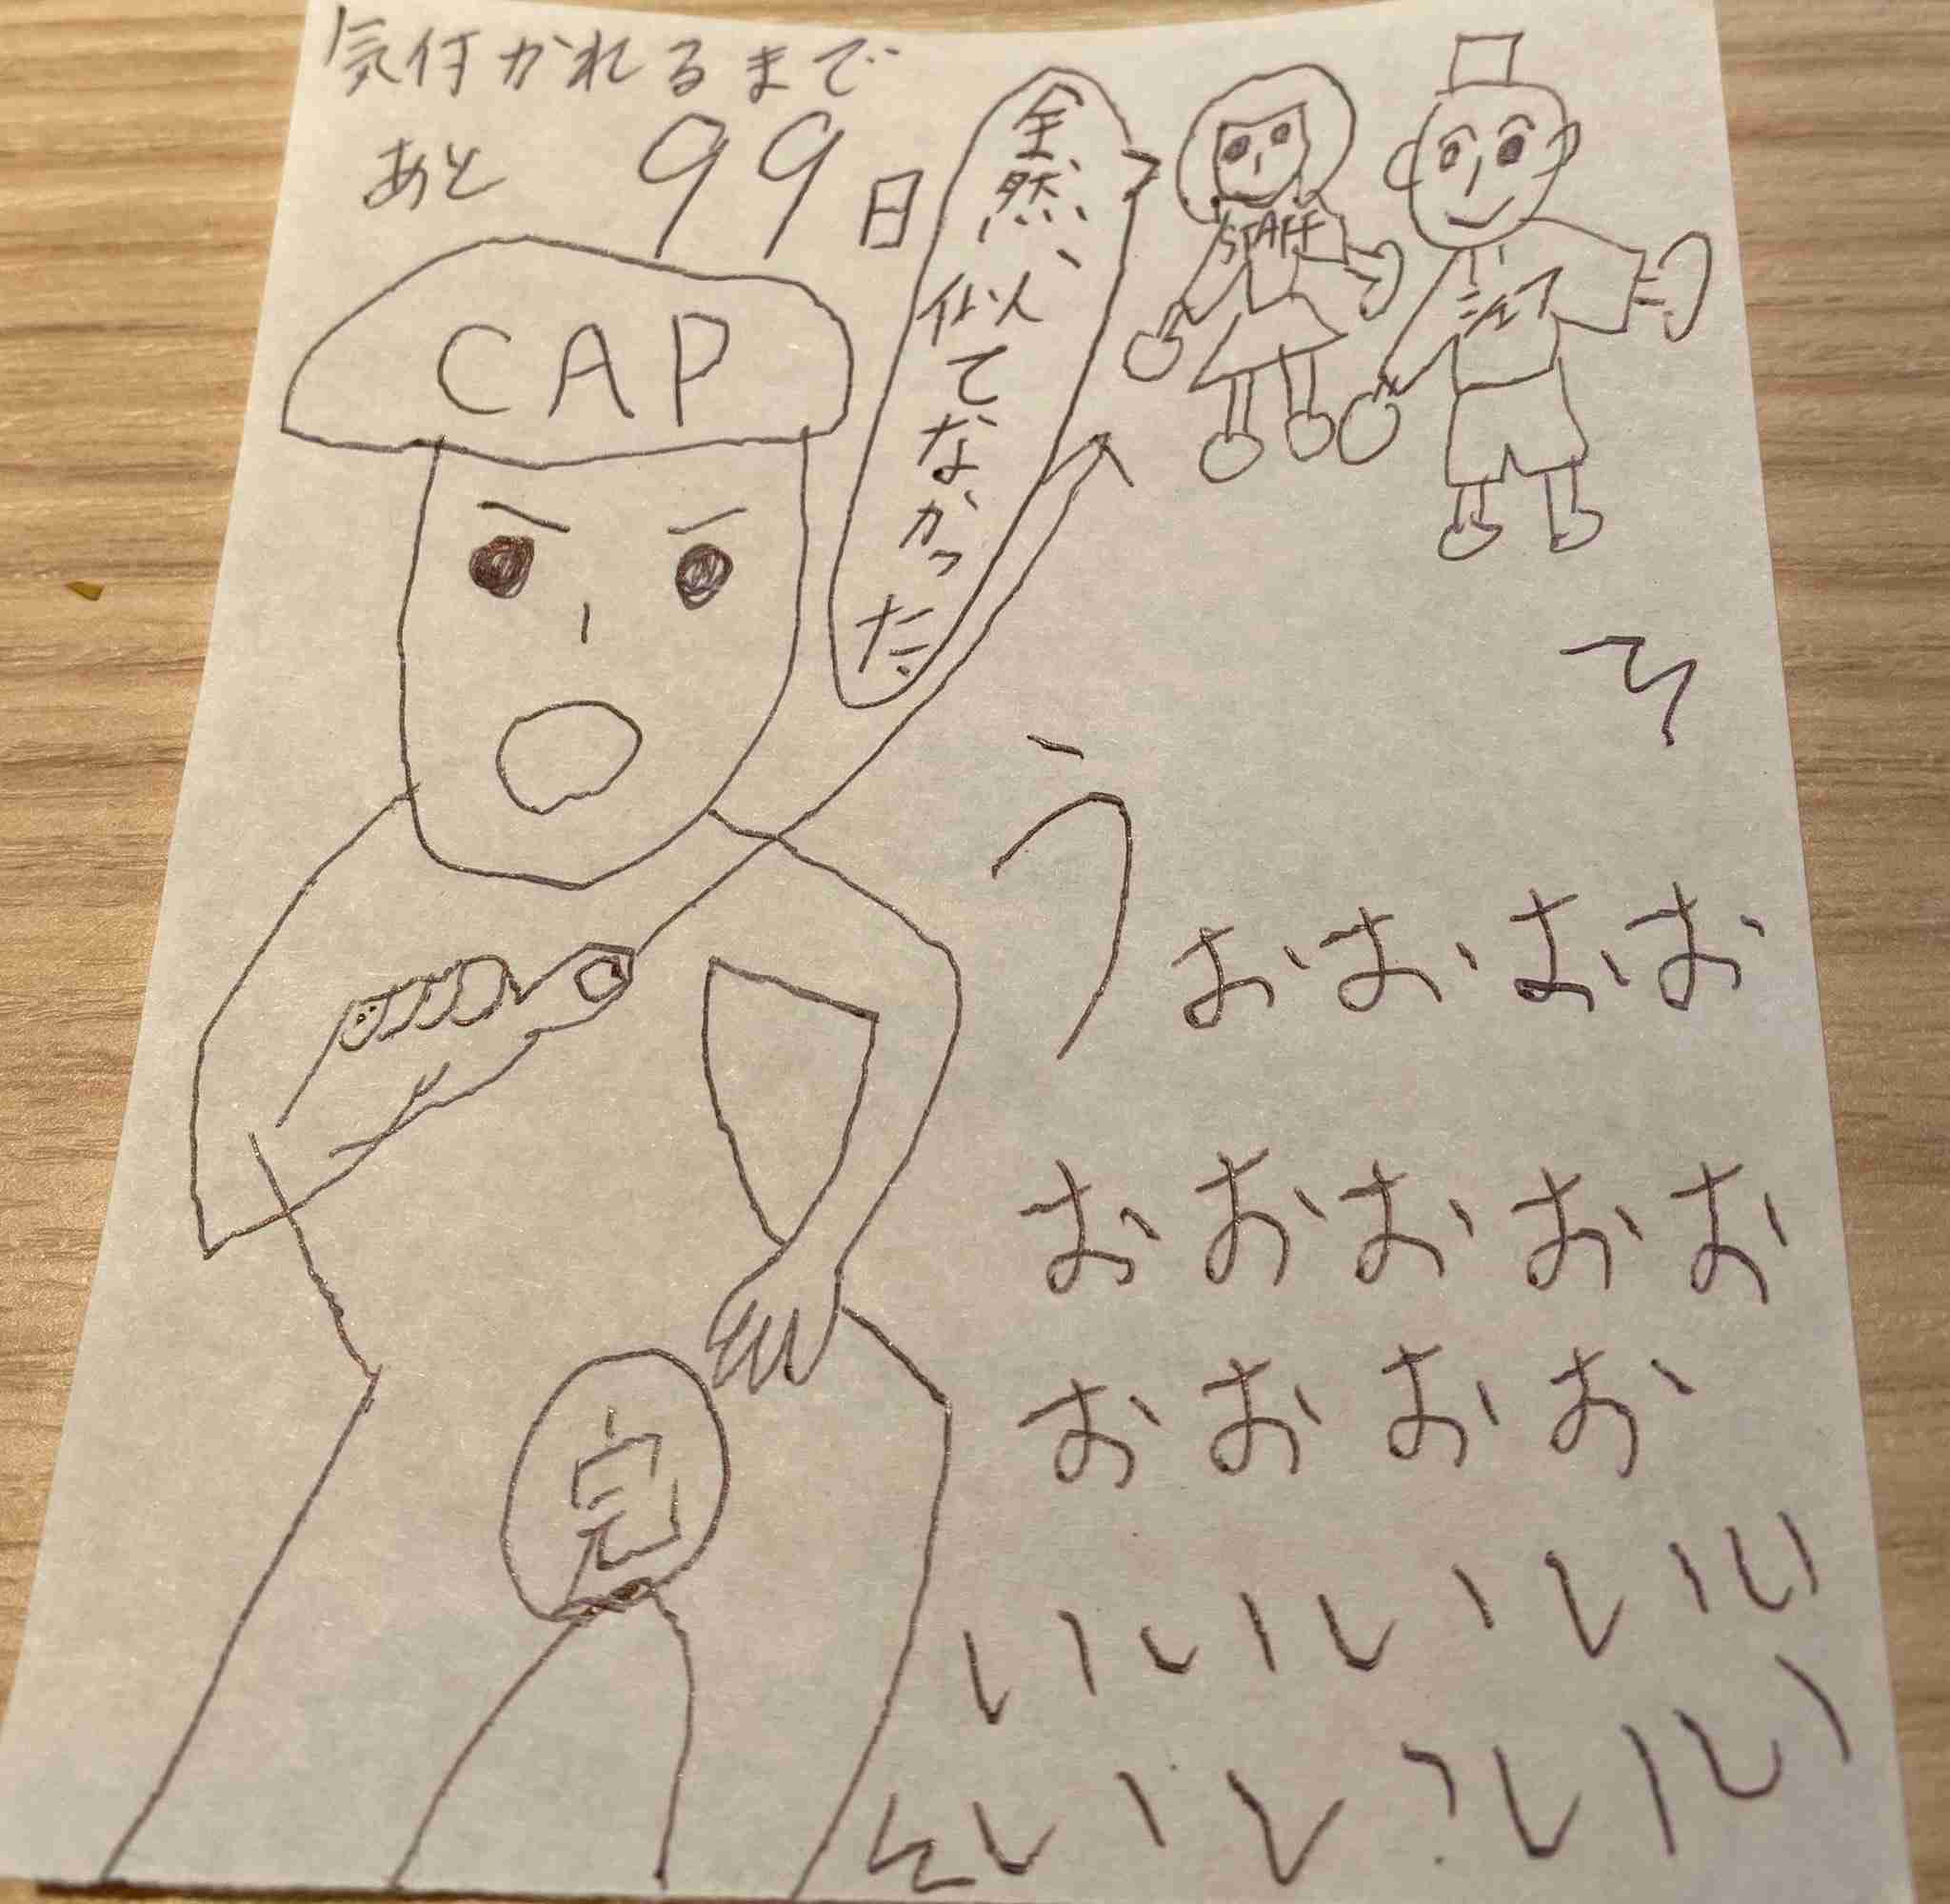 気付かれるまで
あと 99日
全然、似てなかった
STAFF
シェフ
CAP
うおおおお
おおおおお
おおおお
いいいいい
んいいいい
完